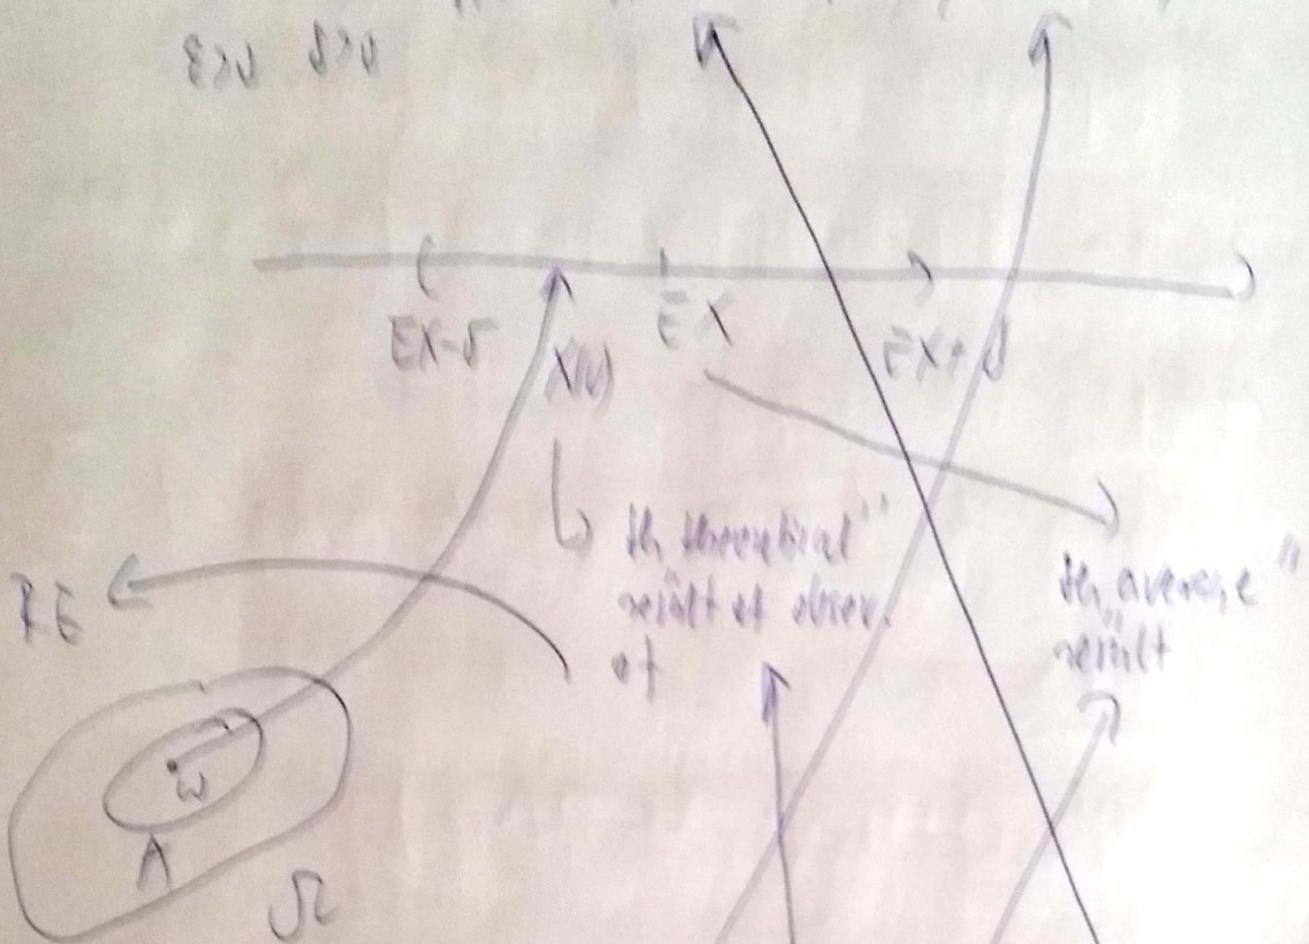 ε>0 δ>0
EX-δ X(ω) EX EX+δ
the theoretical"
result of obser.
of
the „average"
result
RE
ω
A
Ω